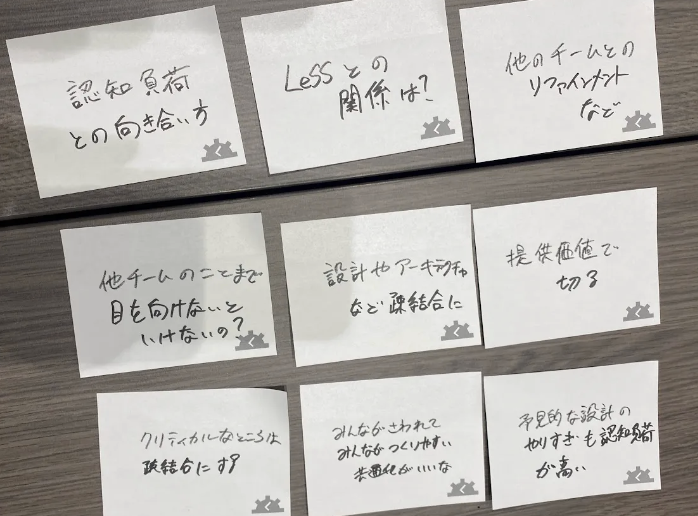 認知負荷
との向き合い方
LeSSとの
関係は?
他のチームとの
リファインメント
など
他チームのことまで
目を向けないと
いけないの?
設計やアーキテクチャ
など疎結合に
提供価値で
切る
クリティカルなところは
疎結合にする
みんながさわれて
みんながつくりやすい
共通化がいいな
予見的な設計の
やりすぎも認知負荷
が高い